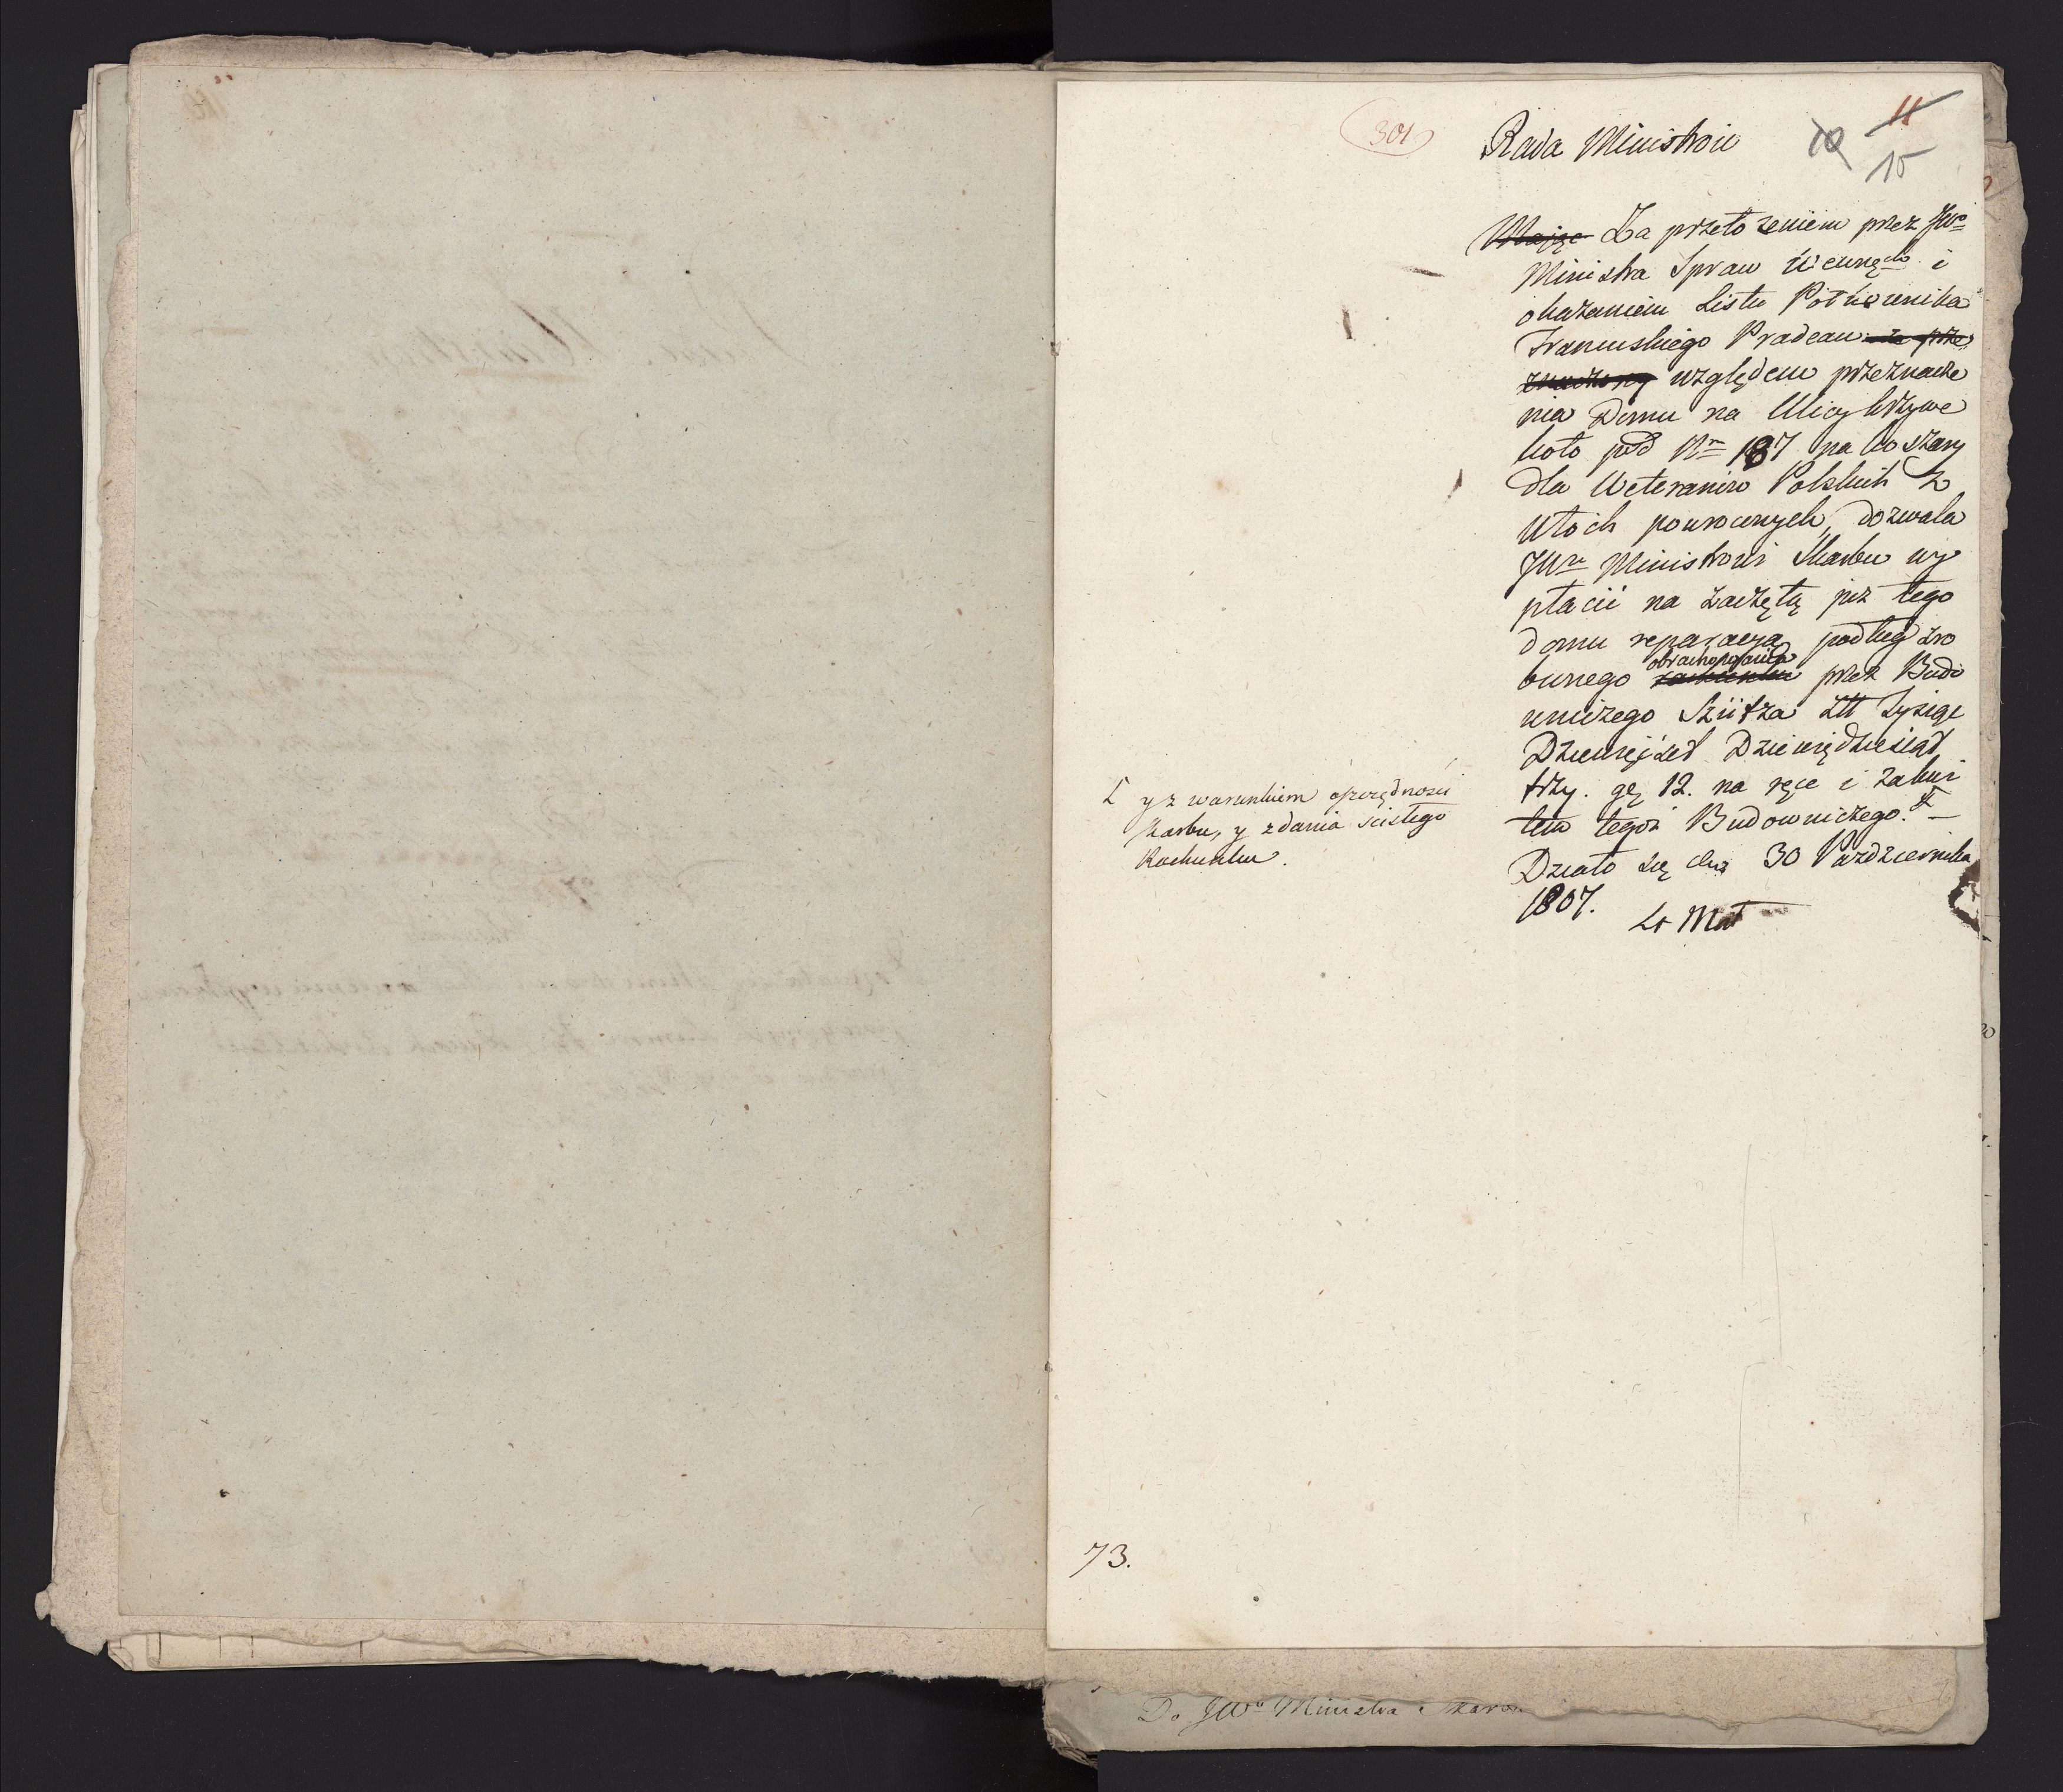 301
Rada Ministrow
10 11
15
Mając Za przełożeniem przez JWo
Ministra Spraw Wewnę. i
okazaniem Listu Półkownika
Francuskiego Pradeau
względem przeznacze
nia Domu na Ulicy krzywe
koło pod Nrm 187 na koszary
dla Weteranow Polskich z
Włoch powroconych, dozwala
JWu Ministrowi Skarbu wy
płacić na zaczętą już tego
domu reparacyą podług zro
bionego obrachowania przez Budo
wniczego Szütza Złł Tysiąc
Dziewięćset Dziewiędziesiąt
trzy. gę 12. na ręce i za kwi
tem tegoż Budowniczego. –
Działo się dnia 30 Października
1807.
y z warunkiem oszczędnosci
skarbu, y zdania scisłego
Rachunku.
73.
Do JWo Ministra Skarbu